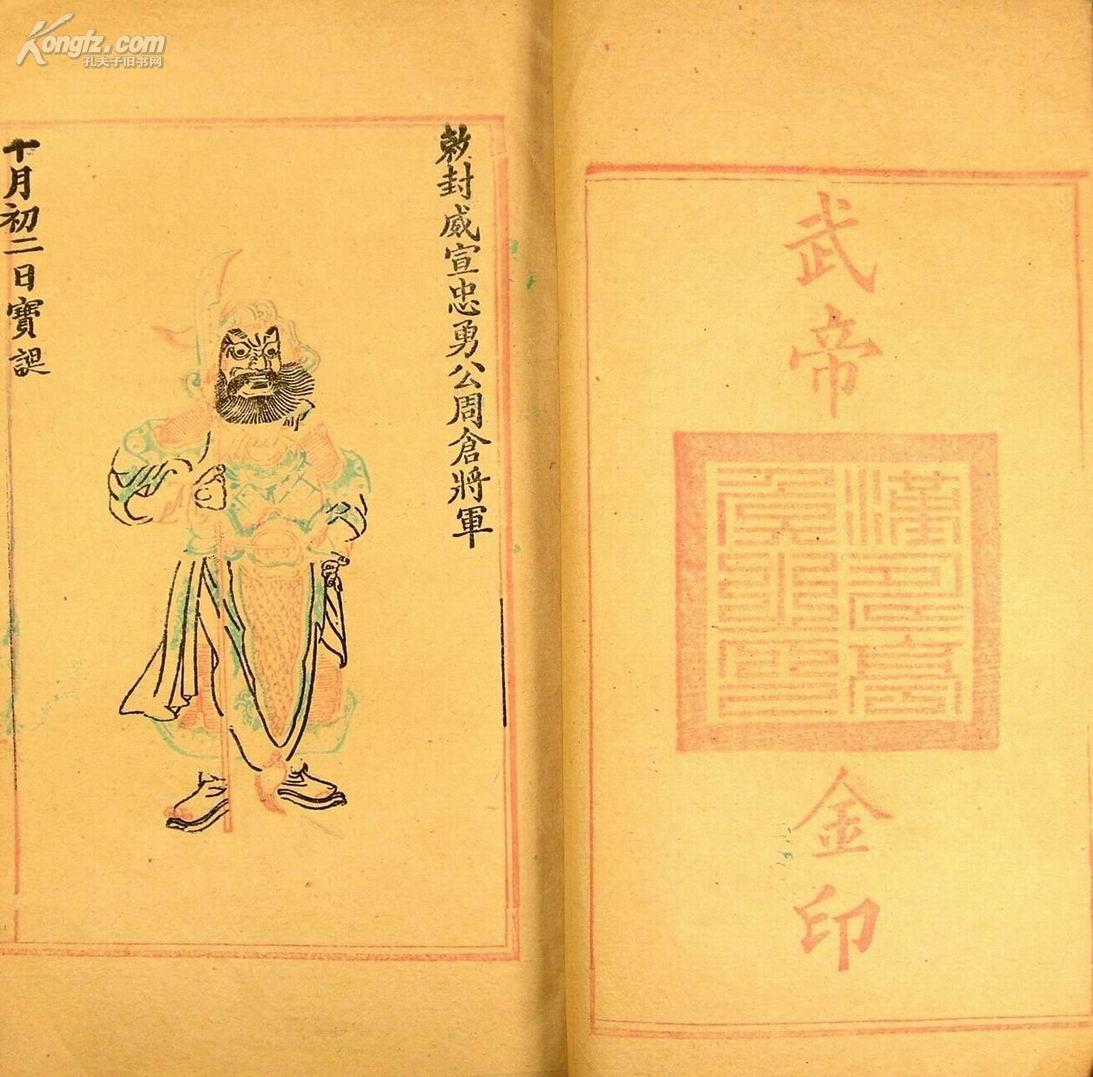 Kongfz.com
孔夫子旧书网
武帝
金印
敕封威宣忠勇公周倉將軍
十月初二日寶誕